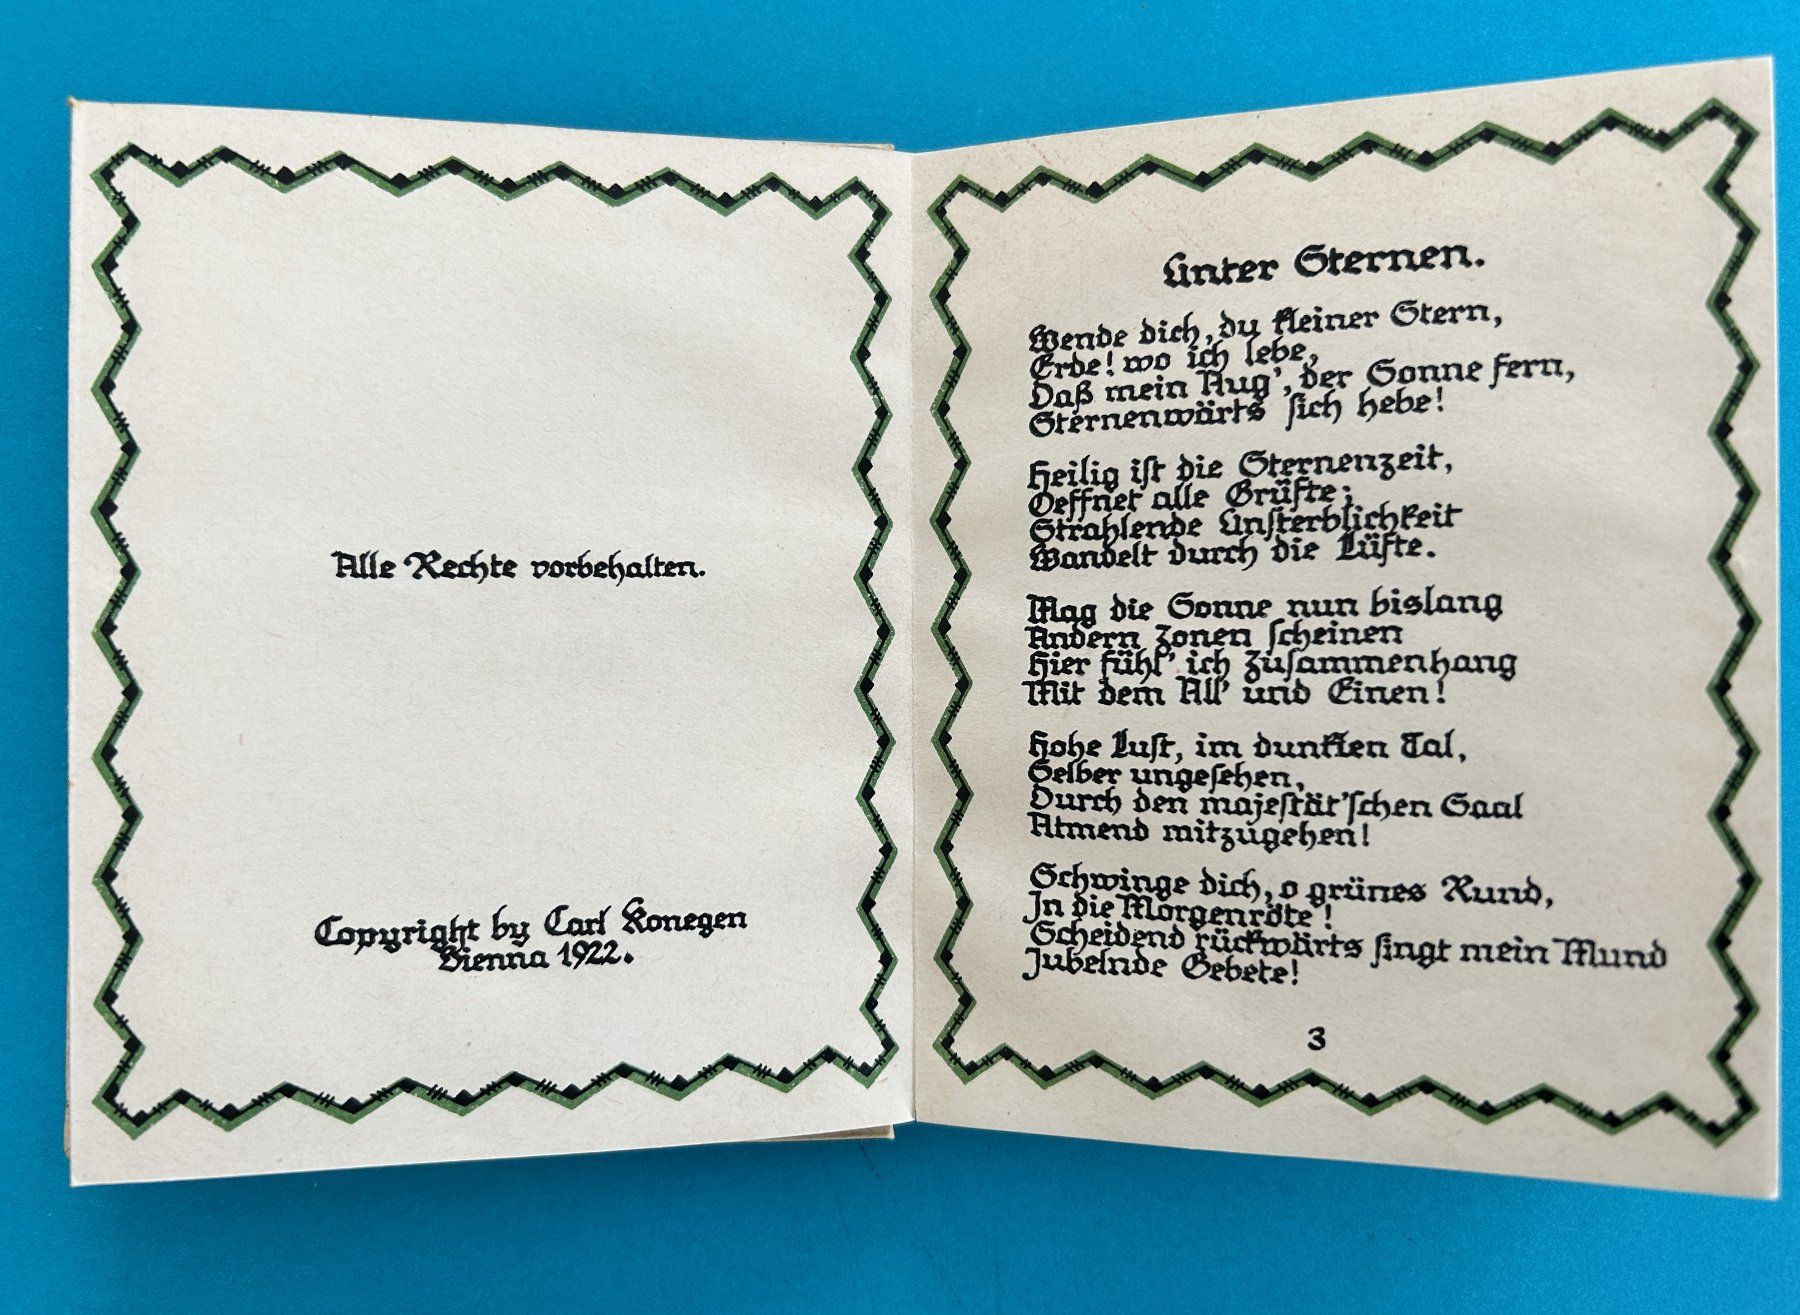 Alle Rechte vorbehalten.
Copyright by Carl Konegen
Vienna 1922.
Unter Sternen.
Wende dich, du kleiner Stern,
Erde! wo ich lebe,
Daß mein Aug', der Sonne fern,
Sternenwärts sich hebe!
Heilig ist die Sternenzeit,
Oeffnet alle Grüfte;
Strahlende Unsterblichkeit
Wandelt durch die Lüfte.
Mag die Sonne nun bislang
Andern Zonen scheinen
Hier fühl' ich Zusammenhang
Mit dem All' und Einen!
Hohe Lust, im dunklen Tal,
Selber ungesehen,
Durch den majestät'schen Saal
Atmend mitzugehen!
Schwinge dich, o grünes Rund,
In die Morgenröte!
Scheidend rückwärts singt mein Mund
Jubelnde Gebete!
3